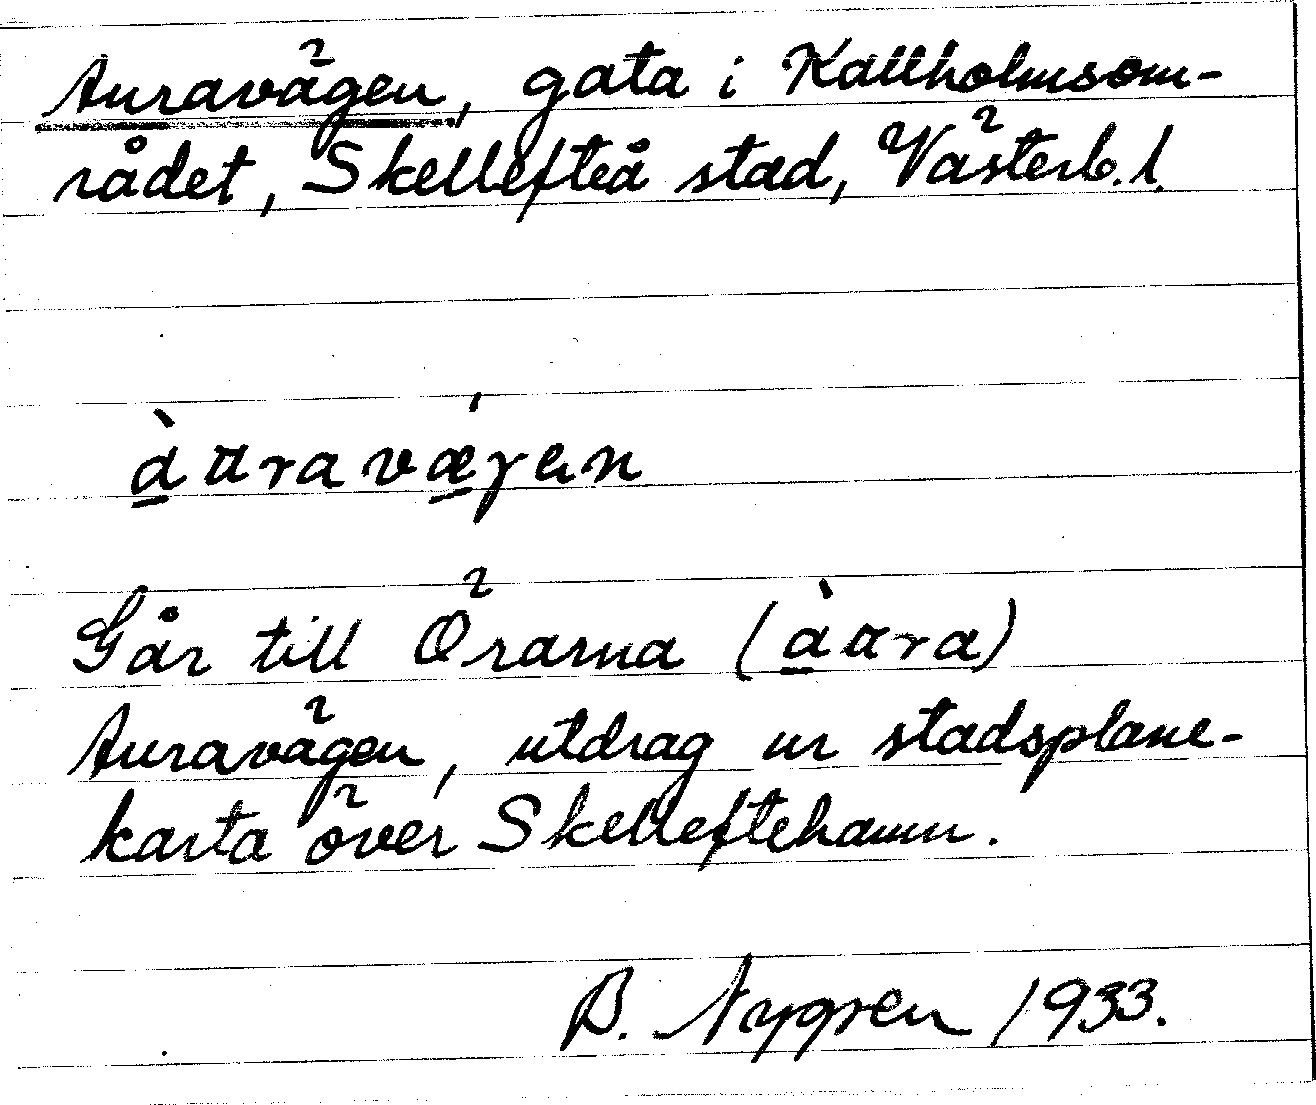 Auravägen, gata i Kallholmsom-
rådet, Skellefteå stad, Västerb.l.
àɑravǽγɛn
Går till Örarna (àɑra)
Auravägen, utdrag ur stadsplane-
karta över Skelleftehamn.
B. Nygren 1933.